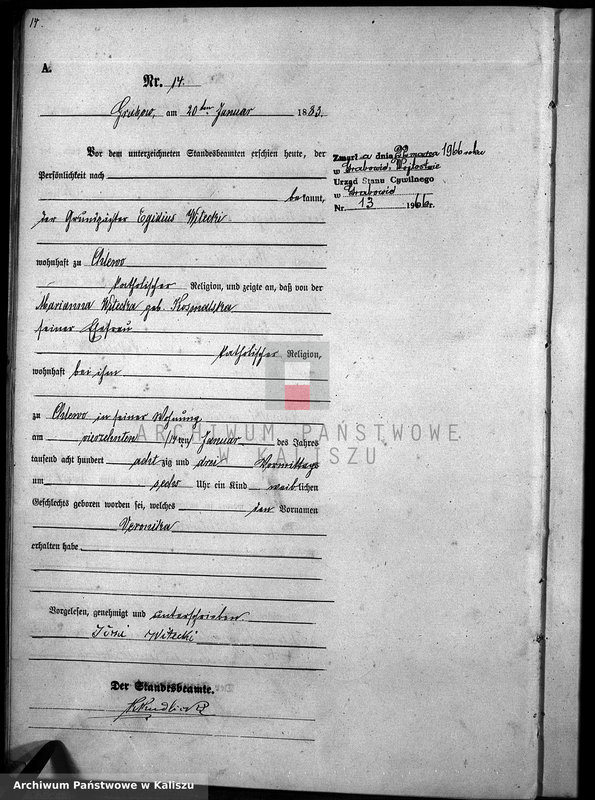 14.
A.
Nr. 14.
Grabow, am 20ten Januar 1883.
Vor dem unterzeichneten Standesbeamten erschien heute, der
Persönlichkeit nach
bekannt,
der Grundpächter Egidius Witecki
wohnhaft zu Chlewo
katholischer Religion, und zeigte an, daß von der
Marianna Witecka geb. Kosmalska
seiner Ehefrau
katholischer Religion,
wohnhaft bei ihm
zu Chlewo in seiner Wohnung
am vierzehnten /14ten Januar des Jahres
tausend acht hundert achtzig und drei Vormittags
um sechs Uhr ein Kind weiblichen
Geschlechts geboren worden sei, welches den Vornamen
Veronika
erhalten habe
Vorgelesen, genehmigt und unterschrieben
Witecki
Der Standesbeamte.
Zmarła dnia marca 1966 roku
w Grabowie, Wojtostwie
Urząd Stanu Cywilnego
w Grabowie
Nr. 13 1966 r.
ARCHIWUM PAŃSTWOWE
W KALISZU
Archiwum Państwowe w Kaliszu